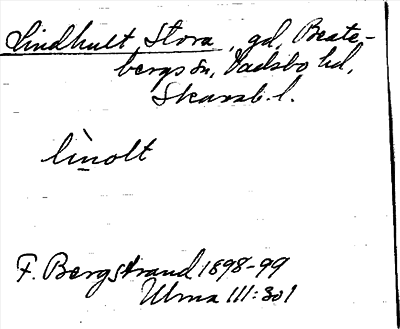 Lindhult, Stora, gd, Beate-
bergs sn, Vadsbo hd,
Skarab. l.
lìnolt
F. Bergstrand 1898-99
Ulma 111:301